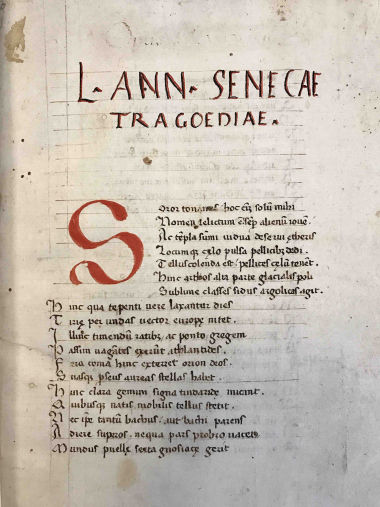 L. ANN. SENECAE
TRAGOEDIAE.
Soror tonantis hoc eñ solũ mihi
Nomen relictum est sẽp alienũ iouẽ.
Ac tẽpla sũmi uidua deserui etheris
Locumq̃ cẽlo pulsa pellicibꝫ dedi.
Tellus colenda est. pellices cẽlũ tenẽt.
Hinc arthos alta parte glacialis poli
Sublime classes sidus argolicas agit.
Hinc qua tepenti uere laxantur dies
Tirie per undas uector europe nitet.
Illinc timendũ ratibꝫ ac ponto gregem
Passim uagãtes exerũt athlantides.
Fera comã hinc exterret orion deos.
Suasq̃ pseus aureas stellas habet.
Hinc clara gemini signa tindaride micant.
Quibusq̃ natis mobilis tellus stetit.
Nec ip̃e tantũ bachus aut bachi parens
Adiere supos. nequa pars probro uacet
Mundus puelle serta gnosiace gerit